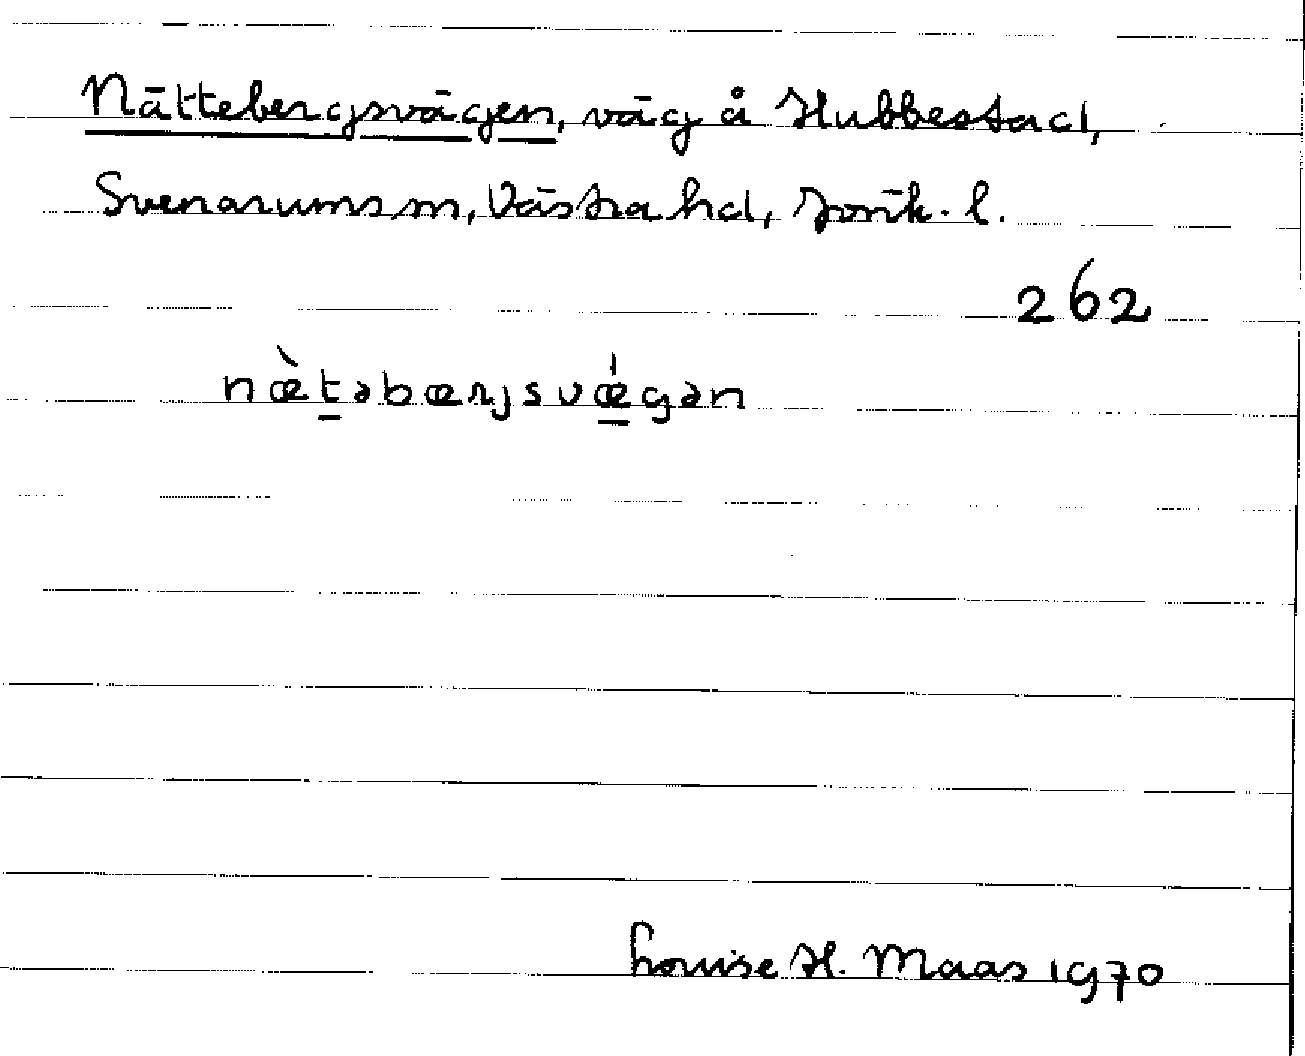 Nättebergsvägen, väg å Hubbestad,
Svenarums sn, Västra hd, Jönk. l.
262
næ̀t̲əbærjsvǽ̲gən
Louise H. Maas 1970